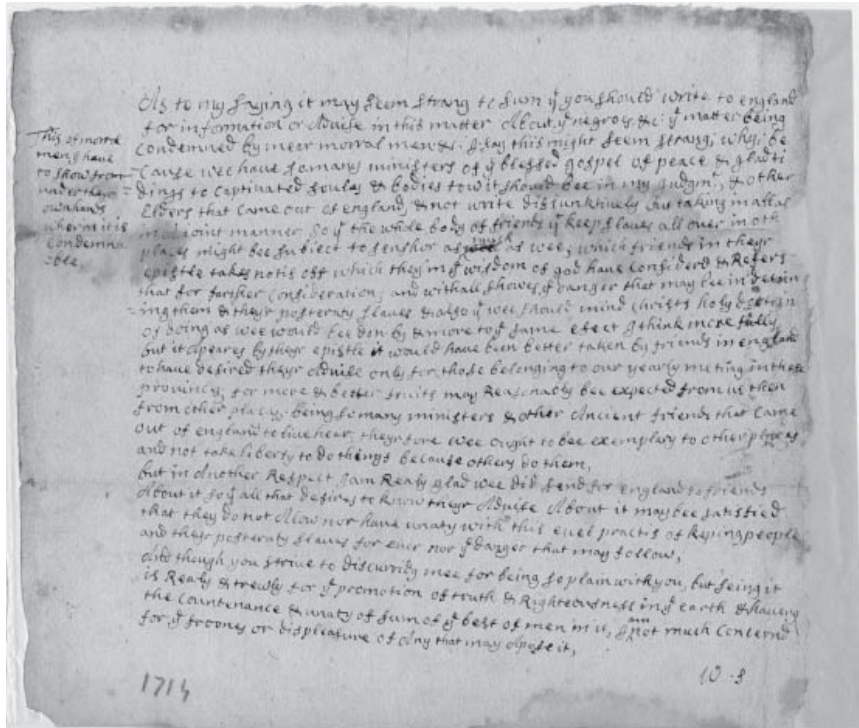 As to my saying it may seem strang to sum yt you should write to england
for information or Advise in this matter About ye negros, &c: ye matter being
Condemned by meer morral men &c. I say this might seem strang, why; be
Cause wee have so many ministers of ye blessed gospel of peace & glad ti
dings to Captivated soules & bodies to w it should bee in my Judgmt, & other
Elders that Came out of england, & not write disjunktively but taking in all as
in a joint manner So yt the whole body of friends yt keep slaves all over in oth
places might bee subject to senshor as mush as wee; which friends in theyr
epistle takes notis off which they in ye wisdom of god have Considerd & Refers
that for farther Consideration, and withall showes ye danger that may bee in detain
ing them & theyr posteraty slaves & also yt wee should mind Christs holy doctrin
of doing as wee would bee don by & more to ye same efect I think more fully
but it Apeares by theyr epistle it would have been better taken by friends in england
to have desired theyr Advise only for those belonging to our yearly meting in these
provinces, for more & better fruits may Reasonably bee expected from us then
from other places. being so many ministers & other Ancient friends that Came
out of england to live hear, theyrfore wee ought to bee exemplary to other places
and not take liberty to do things because others do them,
but in Another Respect I am Realy glad wee did send for england to friends
About it so yt all that desires to know theyr Advise About it may bee satisfied
that they do not Allow nor have unaty with this evel practis of keping people
and theyr posteraty slaves for ever nor ye danger that may follow,
And though you strive to discurridg mee for being so plain with you, but seing it
is Realy & trewly for ye promotion of truth & Righteousness in ye earth & having
the Countenance & unaty of sum of ye best of men in it, I am not much Concernd
for ye froones or displeasure of Any that may Apose it,
W-S
This of morral
men I have
to show from
under theyr
own hands
wherin it is
Condemna
ble,
1714